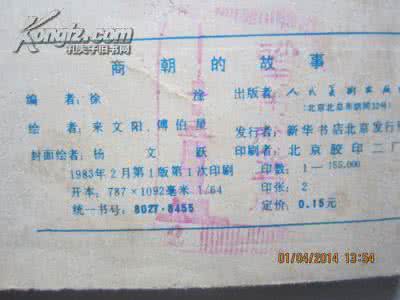 Kongfz.com
孔夫子旧书网
商朝的故事
编者：徐淦 出版者：人民美术出版社
（北京北总布胡同32号）
绘者：来文阳、傅伯星 发行者：新华书店北京发行
封面绘者：杨文跃 印刷者：北京胶印二厂
1983年2月第1版第1次印刷 印数：1—155.000
开本：787×1092毫米 1/64 印张：2
统一书号：8027·8455 定价：0.15元
01/04/2014 13:54